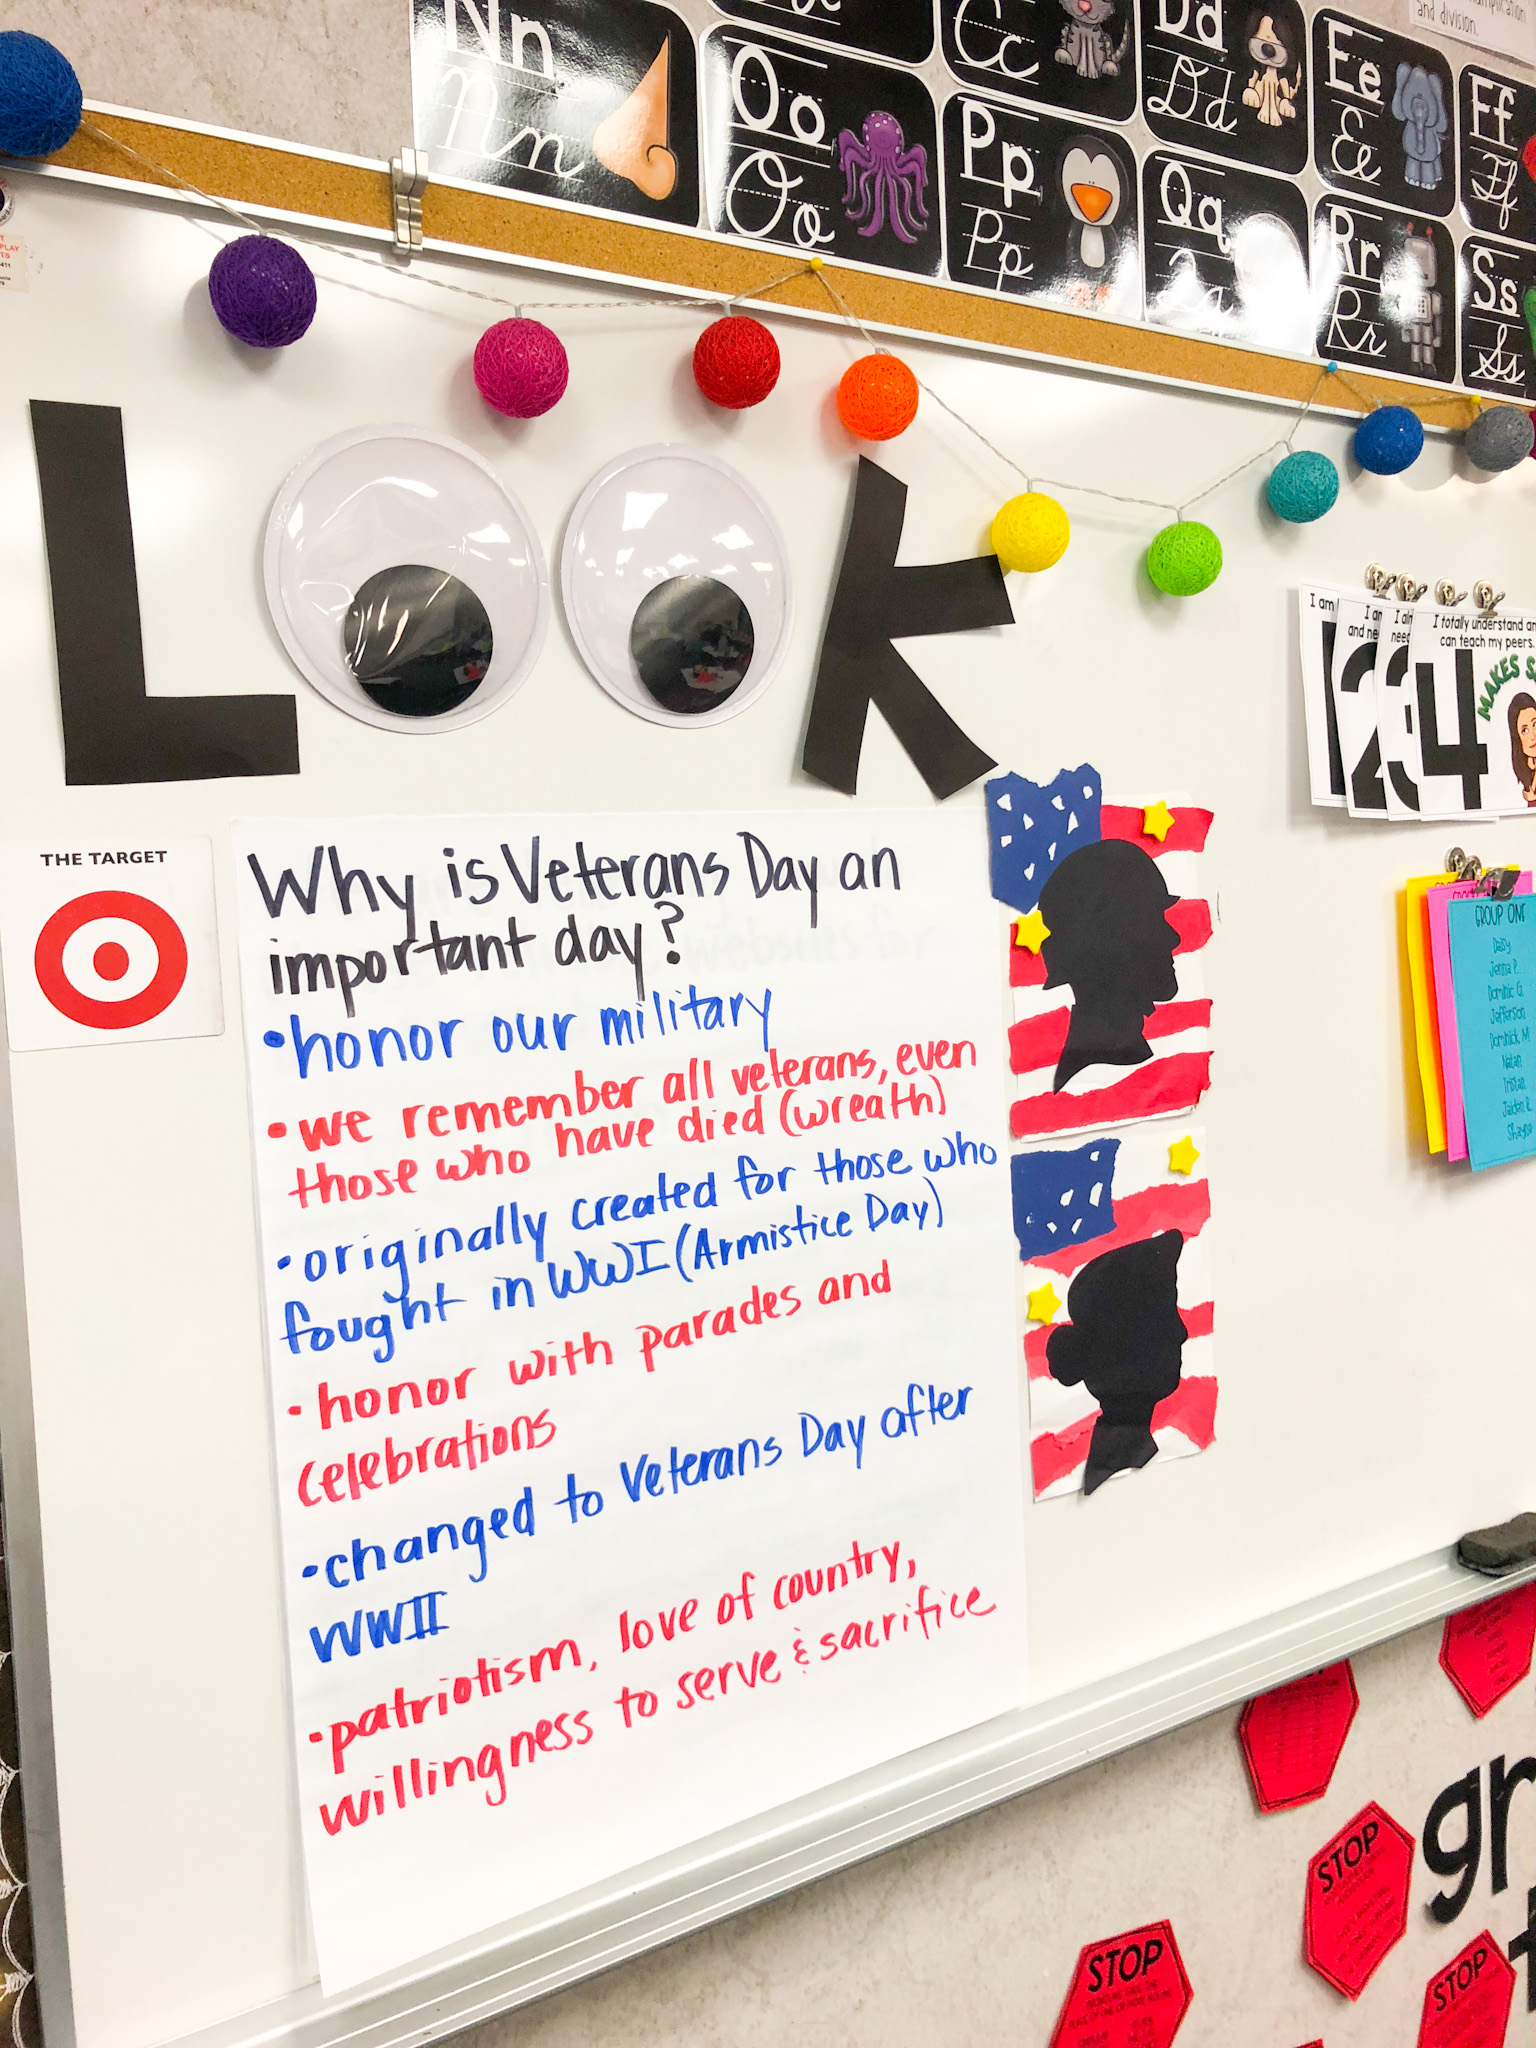 and division.
Nn
Nn
Oo
Oo
Cc
Pp
Pp
Dd
Dd
Qq
Ee
Ee
Rr
Rr
Ff
Ff
Ss
Ss
LOOK
THE TARGET
Why is Veterans Day an
important day?
•honor our military
•we remember all veterans, even
those who have died (wreath)
•originally created for those who
fought in WWI (Armistice Day)
•honor with parades and
celebrations
•changed to Veterans Day after
WWII
•patriotism, love of country,
willingness to serve & sacrifice
I am
1
I am
and
2
3
I totally understand
can teach my peers.
4
MAKES
GROUP ONE
Daisy
Jenna P.
Dominic G.
Jefferson
Dominick M.
Nolan
Tristan
Jaiden R.
Shayne
gr
STOP
STOP
STOP